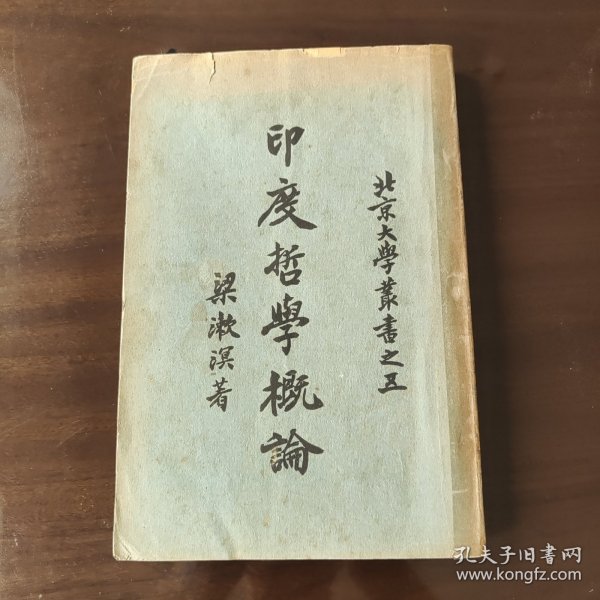 北京大學叢書之五
印度哲學概論
梁漱溟著
孔夫子旧書网
www.kongfz.com